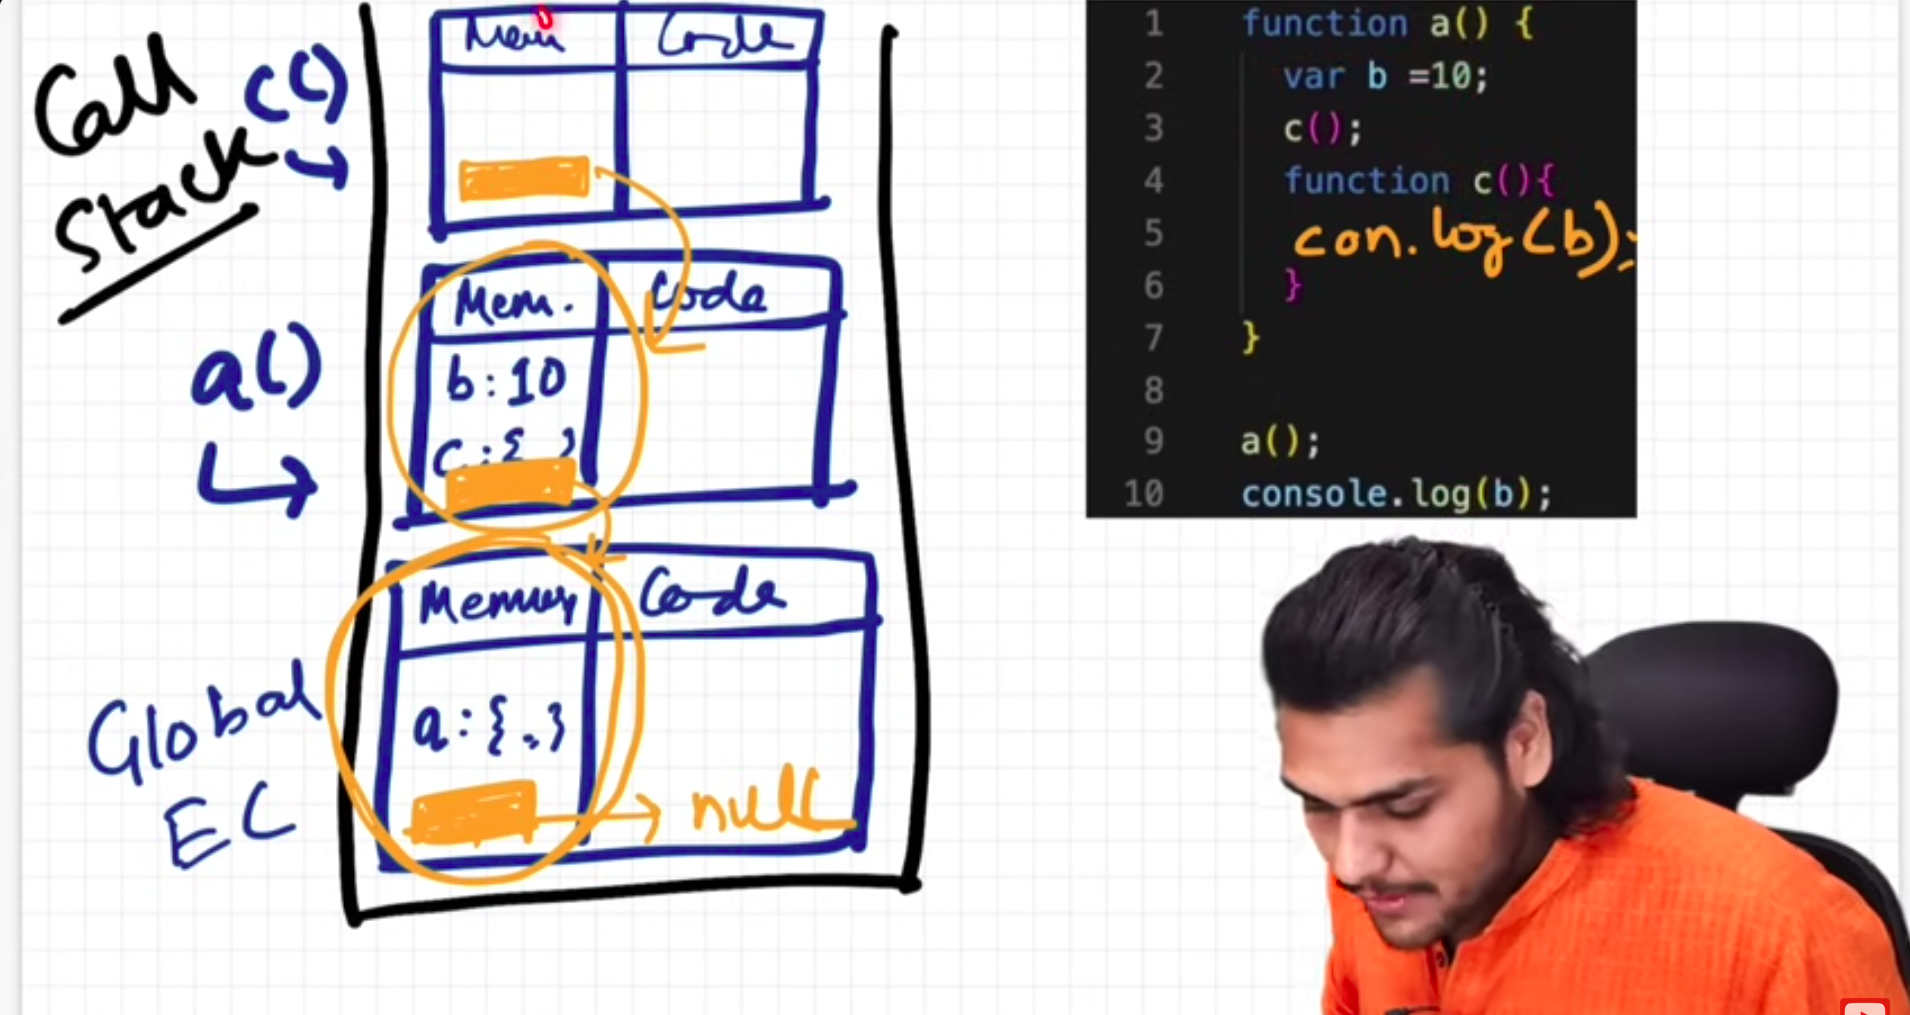 Call
Stack
c()
Mem
Code
a()
Mem.
Code
b:10
c:{ }
Global
EC
Memory
Code
a:{.}
null
1 function a() {
2 var b =10;
3 c();
4 function c(){
5 con.log(b);
6 }
7 }
8
9 a();
10 console.log(b);